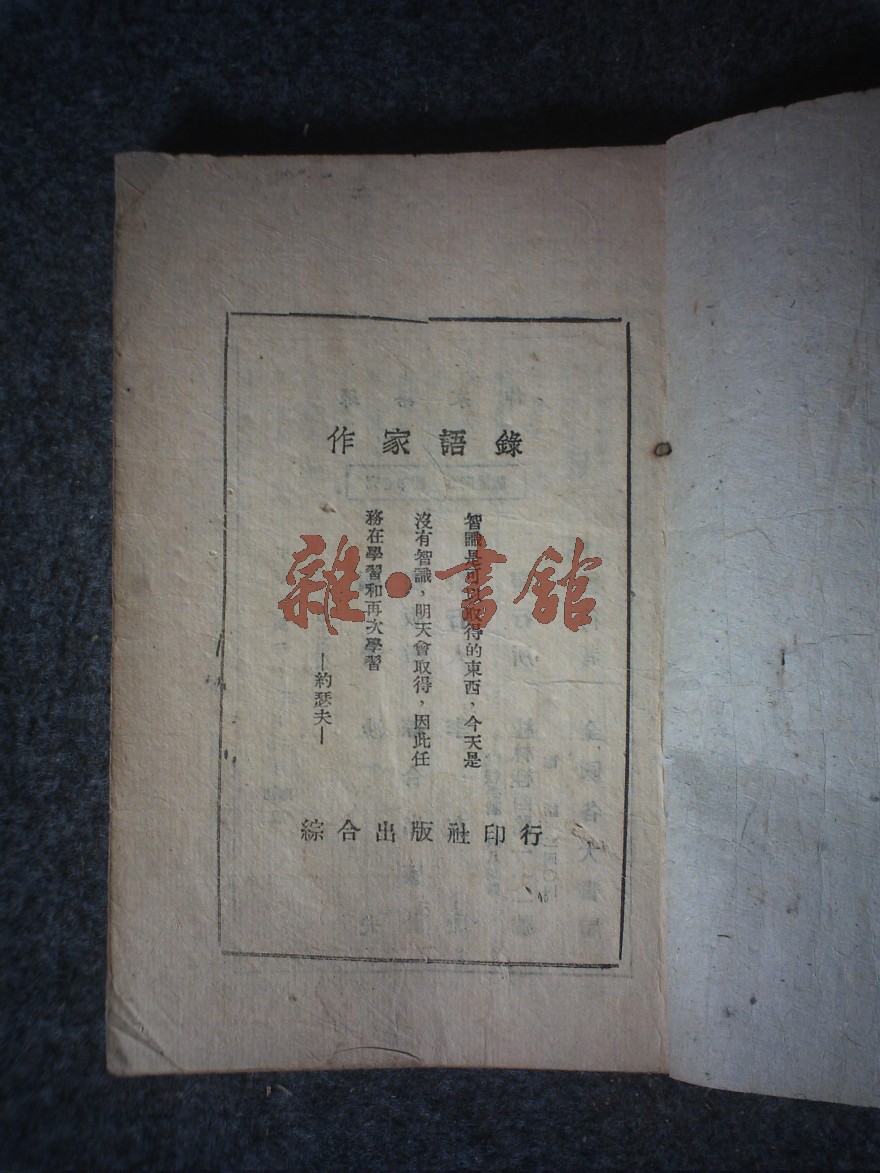 作家語錄
智識是可以取得的東西，今天是
沒有智識，明天會取得，因此任
務在學習和再次學習
—約瑟夫—
綜合出版社印行
雜·書館